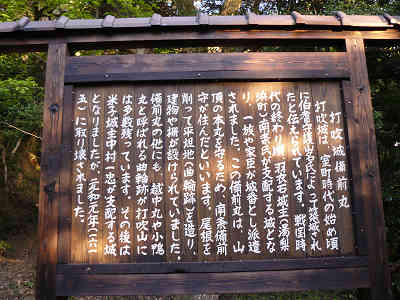 打吹城備前丸
打吹城は、室町時代の始め頃
に伯耆守護山名氏によって築城され
たと伝えられています。戦国時
代の終わり頃、羽衣石城主(湯梨
浜町)南条氏が支配する城とな
り、一族や家臣が城番として派遣
されました。この備前丸は、山
頂の本丸を守るため、南条備前
守が住んだといいます。尾根を
削って平坦地(曲輪跡)を造り、
建物や柵が設けられていました。
備前丸の他にも、越中丸や小鴨
丸と呼ばれる曲輪跡が打吹山に
は多数残っています。その後は
米子城主中村一忠が支配する城
となりましたが、元和元年(一六一
五)に取り壊されました。